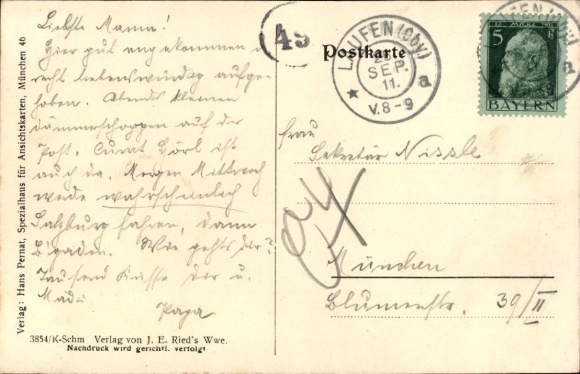 Liebste Mama!
Hier gut angekommen u.
recht liebenswürdig aufge-
hoben. Abends kleinen
Dämmerschoppen auf der
Post. Görl ist
auch da. Morgen Mittwoch
werde wahrscheinlich
Salzburg fahren, dann
Wie gehts dir?
Tausend Küsse dir u.
Mädi
Papa
Verlag: Hans Pernat, Spezialhaus für Ansichtskarten, München 46
3854/K-Schm Verlag von J. E. Ried's Wwe.
Nachdruck wird gerichtl. verfolgt
49
Postkarte
LAUFEN (Oby.)
SEP.
11.
V.8-9
a
5
BAYERN
Frau
Sekretär Nissle
München
Blumenstr. 39/II